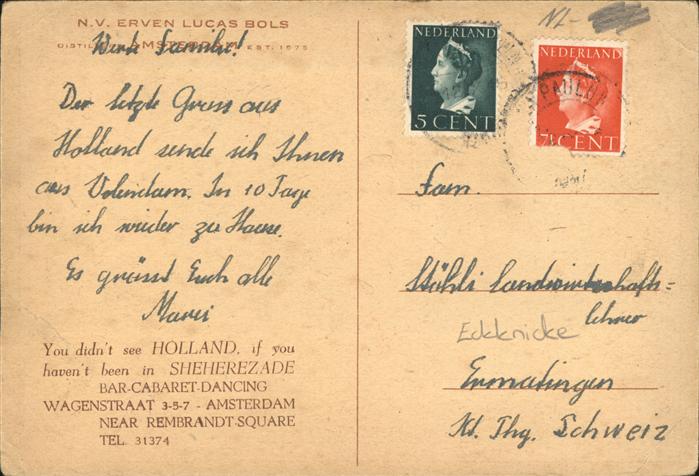 N.V. ERVEN LUCAS BOLS
AMSTERDAM EST. 1575
Werte Familie!
Der letzte Gruss aus
Holland sende ich Ihnen
aus Volendam. In 10 Tage
bin ich wieder zu Hause.
Es grüsst Euch alle
You didn't see HOLLAND, if you
haven't been in SHEHEREZADE
BAR-CABARET-DANCING
WAGENSTRAAT 3-5-7 - AMSTERDAM
NEAR REMBRANDT-SQUARE
TEL. 31374
NL-
NEDERLAND
5 CENT
NEDERLAND
7½ CENT
Fam.
Stöhli landwirtschafts=
lehrer
Ermatingen
Kt. Thg. Schweiz